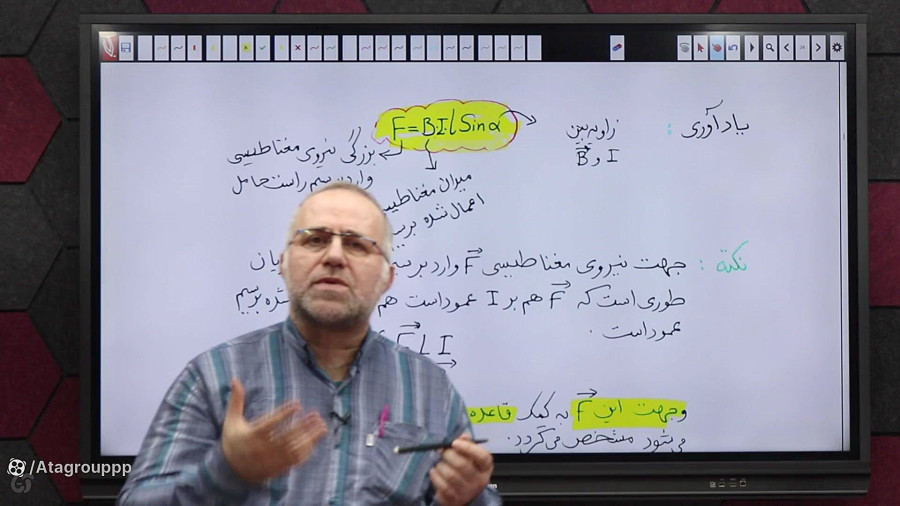 یادآوری :
F = BIl Sin α
زاویه بین
I و B
بزرگی نیروی مغناطیسی
وارد بر سیم راست حامل
میدان مغناطیسی
اعمال شده بر
نکته : جهت نیروی مغناطیسی F وارد بر سیم
طوری است که F هم بر I عمود است هم شده بر سیم
عمود است .
F ⊥ I
وجهت این F به کمک قاعده
می‌شود مشخص می‌گردد .
/Atagrouppp